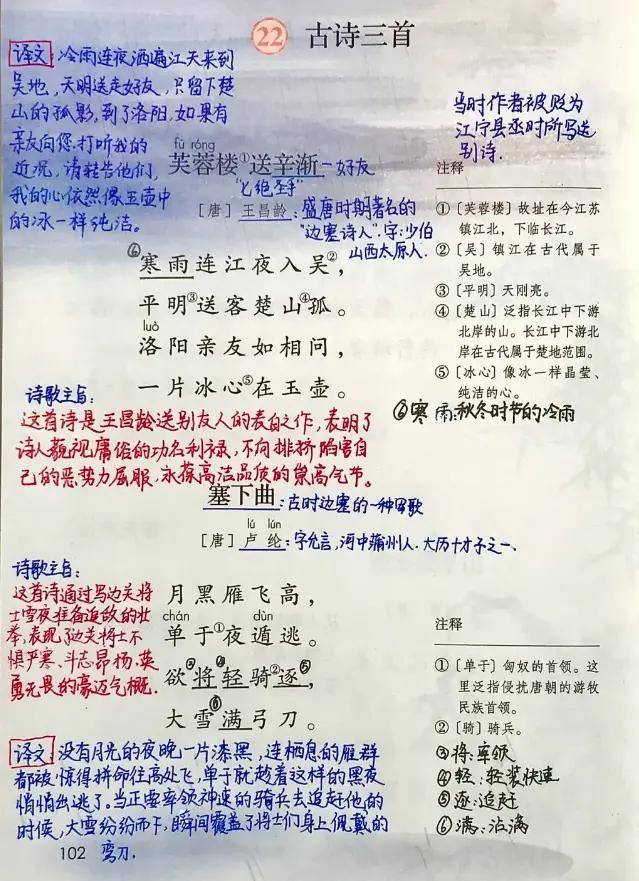 22 古诗三首
译文:冷雨连夜洒遍江天来到
吴地,天明送走好友,只留下楚
山的孤影,到了洛阳,如果有
亲友向您打听我的
近况,请转告他们,
我的心依然像玉壶中
的冰一样纯洁.
当时作者被贬为
江宁县丞时所写送
别诗.
fú róng
芙蓉楼①送辛渐—好友
"七绝圣手"
[唐] 王昌龄:盛唐时期著名的
"边塞诗人".字:少伯
山西太原人.
⑥寒雨连江夜入吴②,
平明③送客楚山④孤。
luò
洛阳亲友如相问,
一片冰心⑤在玉壶。
注释
①〔芙蓉楼〕故址在今江苏
镇江北,下临长江。
②〔吴〕镇江在古代属于
吴地。
③〔平明〕天刚亮。
④〔楚山〕泛指长江中下游
北岸的山。长江中下游北
岸在古代属于楚地范围。
⑤〔冰心〕像冰一样晶莹、
纯洁的心。
⑥寒雨:秋冬时节的冷雨
诗歌主旨:
这首诗是王昌龄送别友人的表白之作,表明了
诗人藐视庸俗的功名利禄,不向排挤陷害自
己的恶势力屈服,永葆高洁品质的崇高气节。
塞下曲:古时边塞的一种军歌
lú lún
[唐] 卢纶:字允言,河中蒲州人.大历十才子之一、
诗歌主旨:
这首诗通过写边关将
士雪夜准备追敌的壮
举,表现了边关将士不
惧严寒、斗志昂扬、英
勇无畏的豪迈气概.
月黑雁飞高,
chán dùn
单于①夜遁逃。
欲将③轻④骑②逐⑤,
大雪满⑥弓刀。
注释
①〔单于〕匈奴的首领。这
里泛指侵扰唐朝的游牧
民族首领。
②〔骑〕骑兵。
③将:率领
④轻:轻装快速
⑤逐:追赶
⑥满:沾满
译文:没有月光的夜晚一片漆黑,连栖息的雁群
都被惊得拼命往高处飞,单于就趁着这样的黑夜
悄悄出逃了。当正要率领神速的骑兵去追赶他的
时候,大雪纷纷而下,瞬间覆盖了将士们身上佩戴的
弯刀.
102